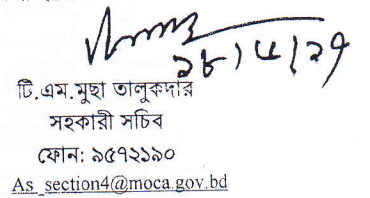 টি.এম.মুছা তালুকদার
সহকারী সচিব
ফোন: ৯৫৭২১৯০
As_section4@moca.gov.bd